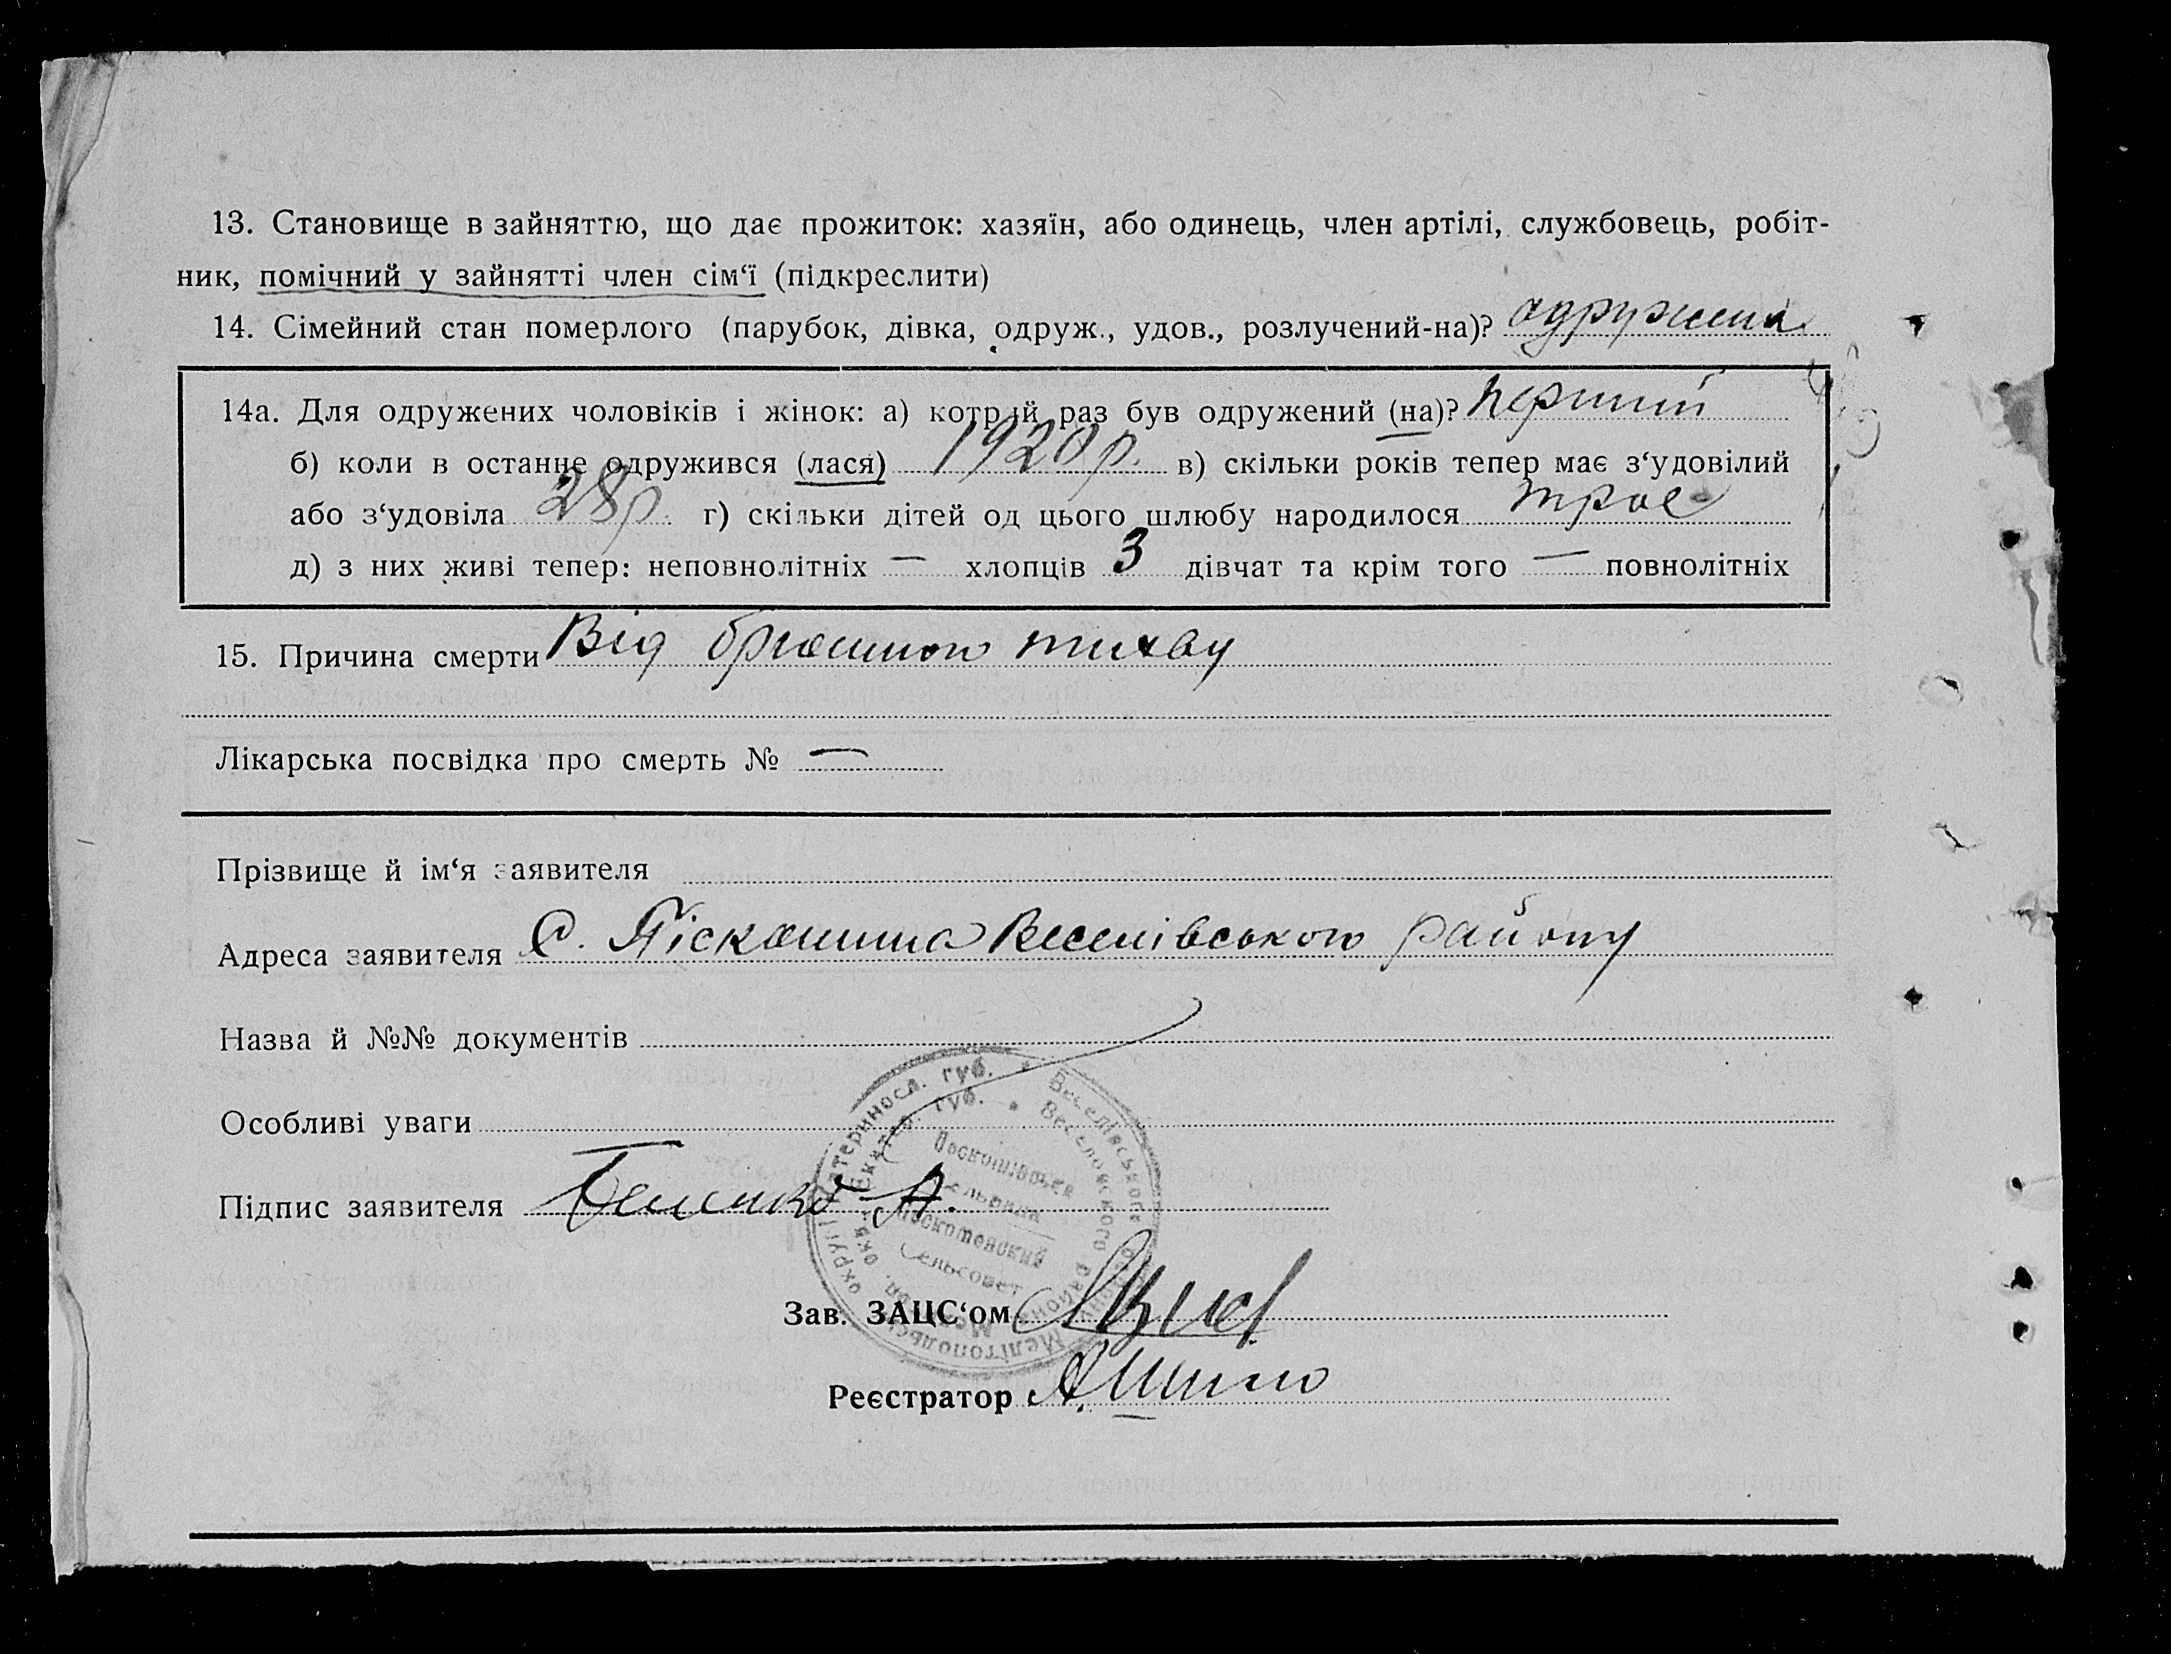 13. Становище в зайняттю, що дає прожиток: хазяїн, або одинець, член артілі, службовець, робіт-
ник, помічний у зайнятті член сім‘ї (підкреслити)
14. Сімейний стан померлого (парубок, дівка, одруж., удов., розлучений-на)? одружена
14а. Для одружених чоловіків і жінок: а) котрий раз був одружений (на)? перший
б) коли в останнє одружився (лася) 1920 р. в) скільки років тепер має з‘удовілий
або з‘удовіла 28 р. г) скільки дітей од цього шлюбу народилося троє
д) з них живі тепер: неповнолітніх — хлопців 3 дівчат та крім того — повнолітніх
15. Причина смерти Від брюшного тихву
Лікарська посвідка про смерть № —
Прізвище й ім‘я заявителя
Адреса заявителя С. Піскашина Веселівського району
Назва й №№ документів
Особливі уваги
Підпис заявителя А.
Зав. ЗАЦС‘ом
Реєстратор А. Шило
Катеринос. губ. * Веселівського району Мелітопольськ. округі
Екатер. губ. * Веселовского района Мелитоп. окр.
Сельрада
Сельсовет